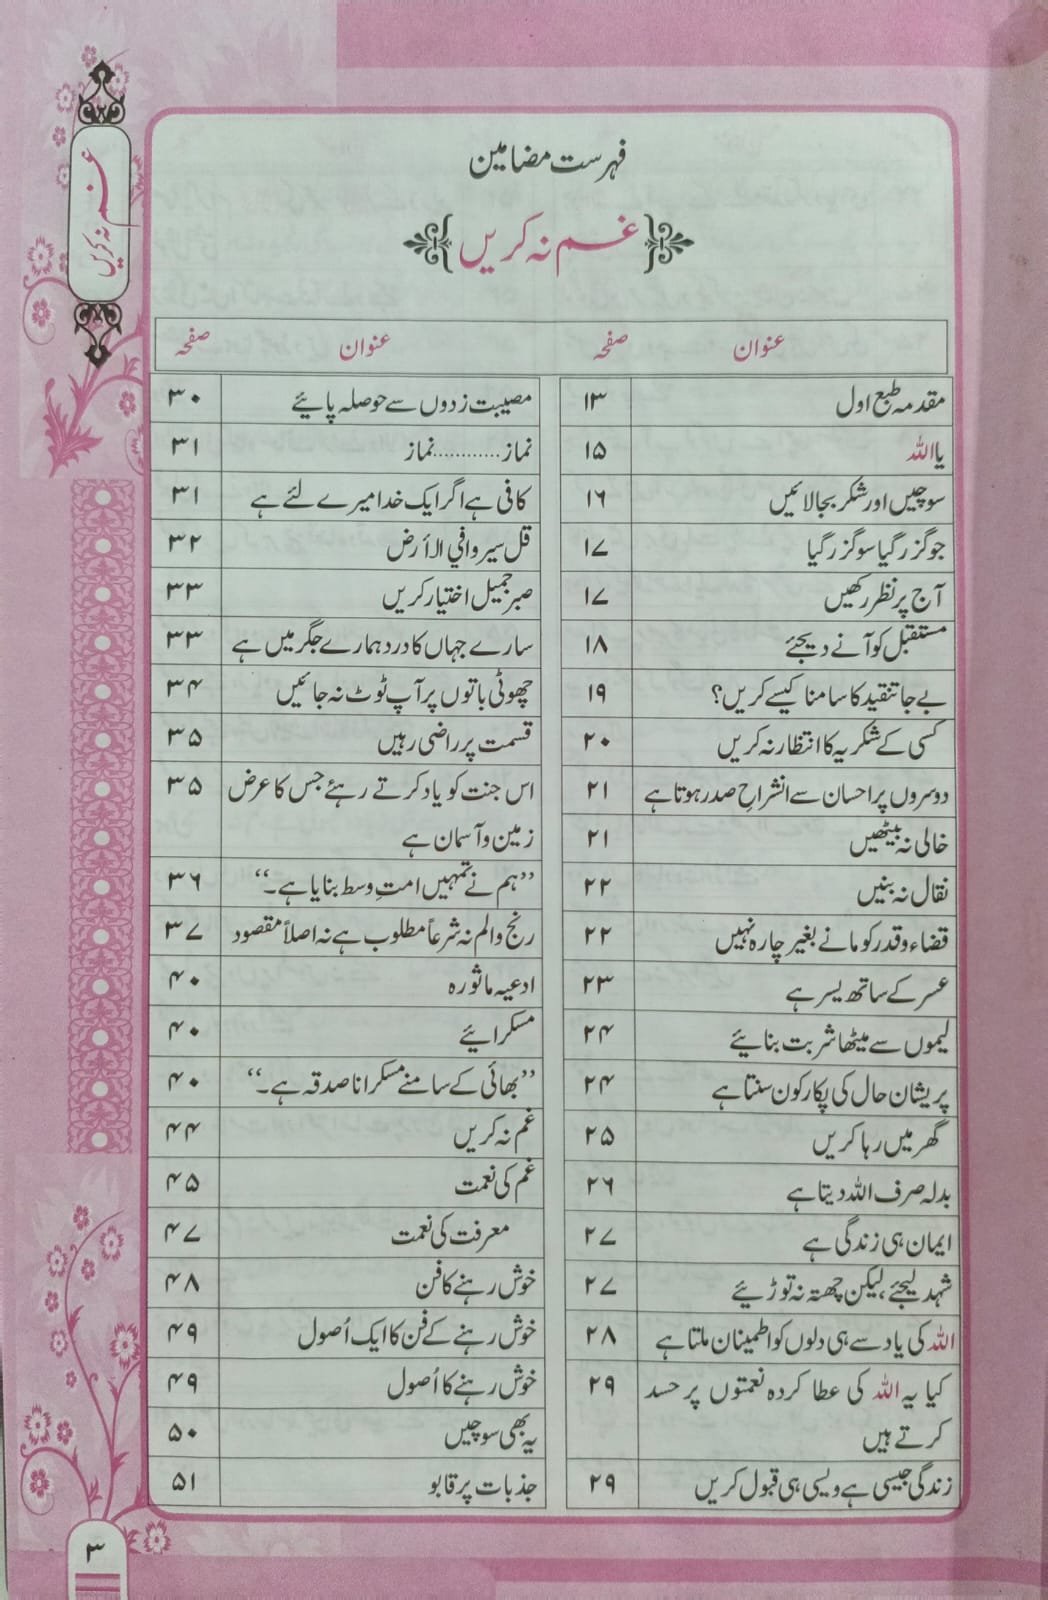 غم نہ کریں
فہرست مضامین
غم نہ کریں
عنوان صفحہ
مقدمہ طبع اول ۱۳
یا اللہ ۱۵
سوچیں اور شکر بجا لائیں ۱۶
جو گزر گیا سو گزر گیا ۱۷
آج پر نظر رکھیں ۱۷
مستقبل کو آنے دیجئے ۱۸
بے جا تنقید کا سامنا کیسے کریں؟ ۱۹
کسی کے شکریہ کا انتظار نہ کریں ۲۰
دوسروں پر احسان سے انشراحِ صدر ہوتا ہے ۲۱
خالی نہ بیٹھیں ۲۱
نقال نہ بنیں ۲۲
قضاء و قدر کو مانے بغیر چارہ نہیں ۲۲
عسر کے ساتھ یسر ہے ۲۳
لیموں سے میٹھا شربت بنائیے ۲۴
پریشان حال کی پکار کون سنتا ہے ۲۴
گھر میں رہا کریں ۲۵
بدلہ صرف اللہ دیتا ہے ۲۶
ایمان ہی زندگی ہے ۲۷
شہد لیجئے، لیکن چھتہ نہ توڑیئے ۲۷
اللہ کی یاد سے ہی دلوں کو اطمینان ملتا ہے ۲۸
کیا یہ اللہ کی عطا کردہ نعمتوں پر حسد ۲۹
کرتے ہیں
زندگی جیسی ہے ویسی ہی قبول کریں ۲۹
عنوان صفحہ
مصیبت زدوں سے حوصلہ پائیے ۳۰
نماز............نماز ۳۱
کافی ہے اگر ایک خدا میرے لئے ہے ۳۱
قل سیروا في الأرض ۳۲
صبر جمیل اختیار کریں ۳۳
سارے جہاں کا درد ہمارے جگر میں ہے ۳۳
چھوٹی باتوں پر آپ ٹوٹ نہ جائیں ۳۴
قسمت پر راضی رہیں ۳۵
اس جنت کو یاد کرتے رہئے جس کا عرض ۳۵
زمین و آسمان ہے
”ہم نے تمہیں امتِ وسط بنایا ہے۔“ ۳۶
رنج و الم نہ شرعاً مطلوب ہے نہ اصلاً مقصود ۳۷
ادعیہ ماثورہ ۴۰
مسکرائیے ۴۰
”بھائی کے سامنے مسکرانا صدقہ ہے۔“ ۴۰
غم نہ کریں ۴۴
غم کی نعمت ۴۵
معرفت کی نعمت ۴۷
خوش رہنے کا فن ۴۸
خوش رہنے کے فن کا ایک اُصول ۴۹
خوش رہنے کا اُصول ۴۹
یہ بھی سوچیں ۵۰
جذبات پر قابو ۵۱
۳